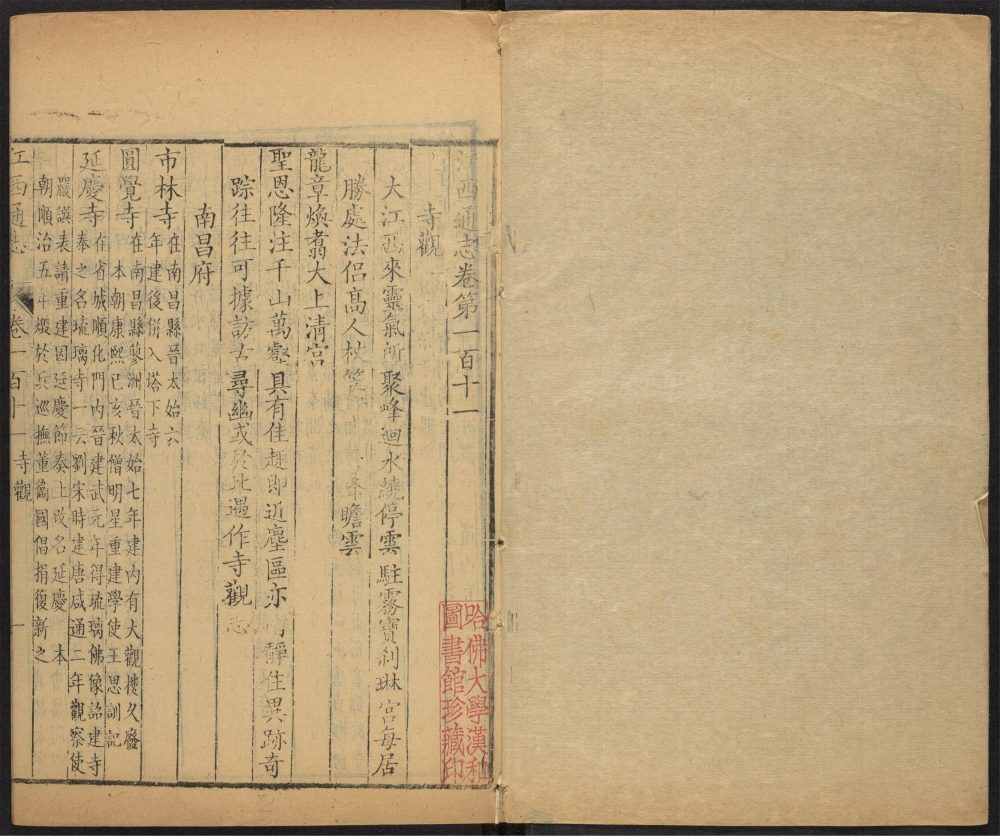 江西通志卷第一百十一
寺觀
大江西來靈氣所聚峰迴水繞停雲駐霧寶刹琳宮每居
勝處法侶高人杖笠瞻雲
龍章煥翥大上清宮
聖恩隆注千山萬壑具有佳趣即近塵區亦靜住異跡奇
踪往往可據訪古尋幽或於此遇作寺觀志
南昌府
市林寺在南昌縣晉太始六
年建後併入塔下寺
圓覺寺在南昌縣蓼洲晉太始七年建內有大觀樓久廢
本朝康熙己亥秋僧明星重建學使王思訓記
延慶寺在省城順化門內晉建武元年得琉璃佛像詔建寺
奉之名琉璃寺一云劉宋時建唐咸通二年觀察使
嚴譔表請重建因延慶節奏上改名延慶 本
朝順治五年燬於兵巡撫董衛國倡捐復新之
江西通志 卷一百十一 寺觀 一
哈佛大學漢和
圖書館珍藏印